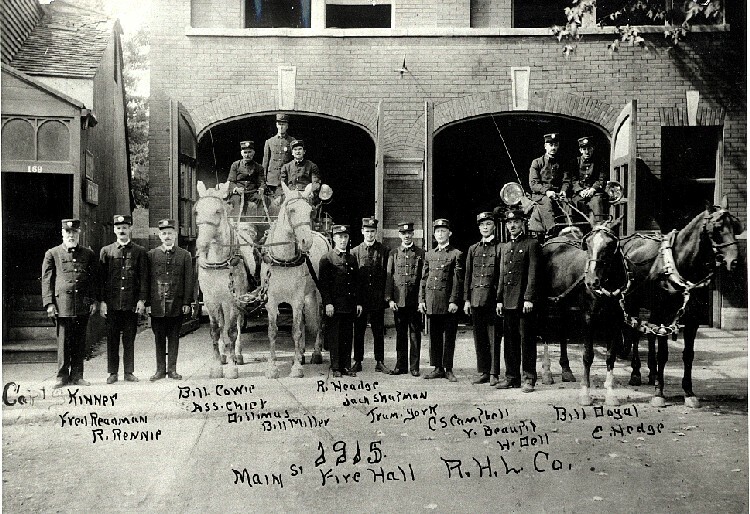 169
Capt Kinner
Fred Reanman
R. Rennie
Bill Cowie
Ass. Chief
Dillimus
Bill Miller
R. Weadge
Jack Sharman
Trum. York
C S Campbell
V. Beaupit
H. Dell
Bill Doyal
C. Hedge
1915.
Main St Fire Hall R.H.L Co.